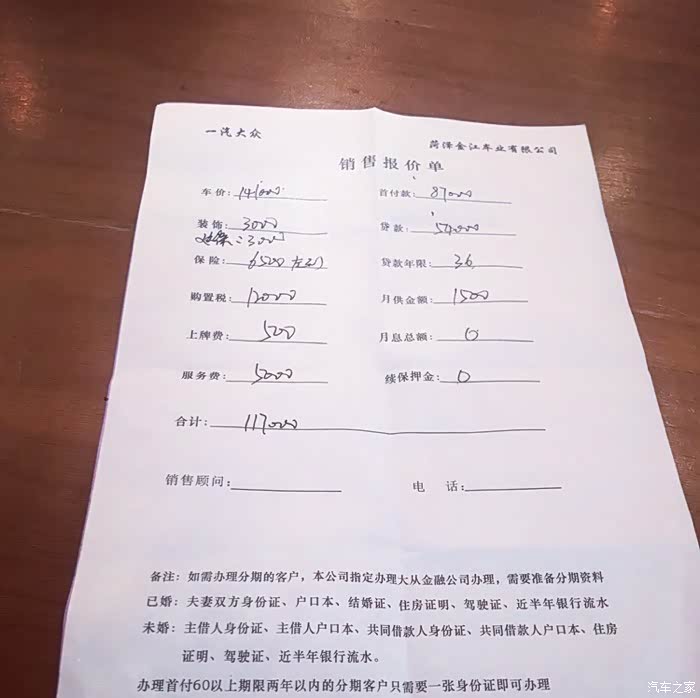 一汽大众 菏泽金江车业有限公司
销售报价单
车价: 141000 首付款: 87000
装饰: 3000 贷款: 54000
: 3000
保险: 6500左右 贷款年限: 36
购置税: 12000 月供金额: 1500
上牌费: 500 月息总额: 0
服务费: 5000 续保押金: 0
合计: 117000
销售顾问: 电 话:
备注: 如需办理分期的客户，本公司指定办理大从金融公司办理，需要准备分期资料
已婚: 夫妻双方身份证、户口本、结婚证、住房证明、驾驶证、近半年银行流水
未婚: 主借人身份证、主借人户口本、共同借款人身份证、共同借款人户口本、住房
证明、驾驶证、近半年银行流水。
办理首付60以上期限两年以内的分期客户只需要一张身份证即可办理
汽车之家